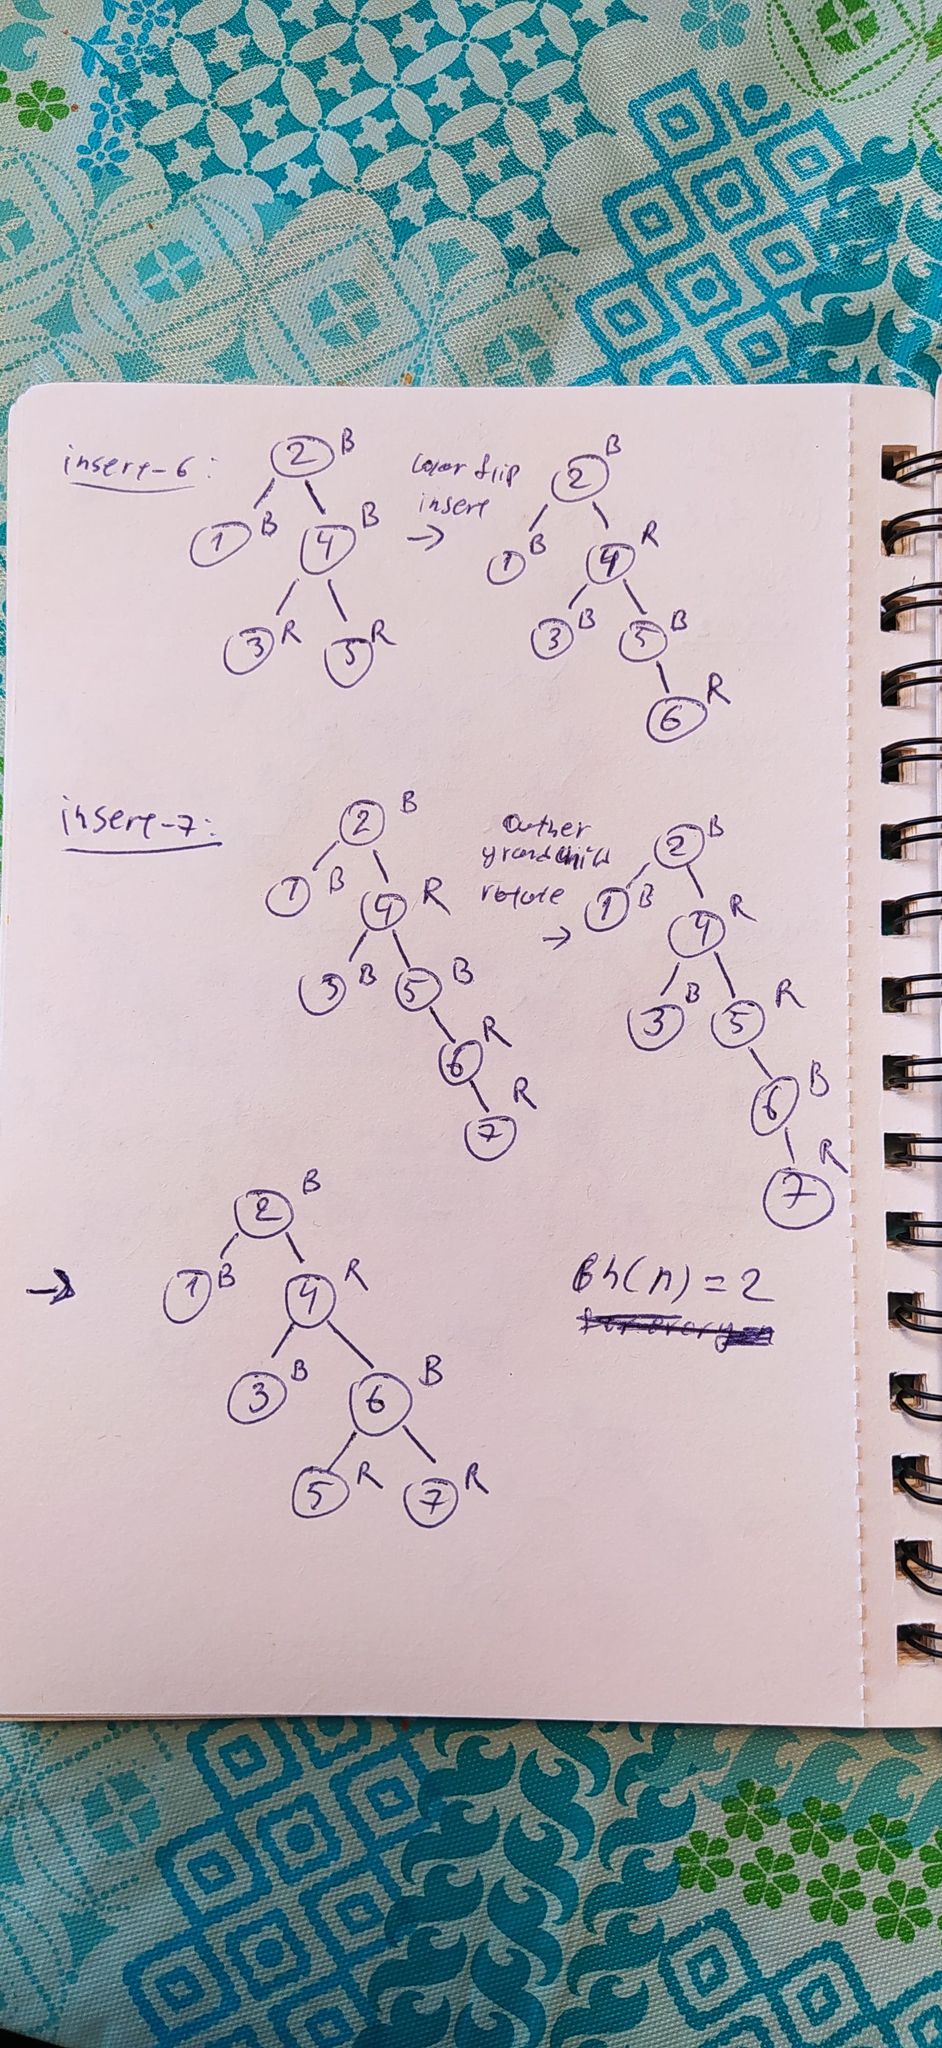 insert-6:
2 B
1 B 4 B
3 R 5 R
color flip
insert
→
2 B
1 B 4 R
3 B 5 B
6 R
insert-7:
2 B
1 B 4 R
3 B 5 B
6 R
7 R
outher
grandchild
rotate
→
2 B
1 B
4 R
3 B 5 R
6 B
7 R
→
2 B
1 B 4 R
3 B 6 B
5 R 7 R
bh(n) = 2